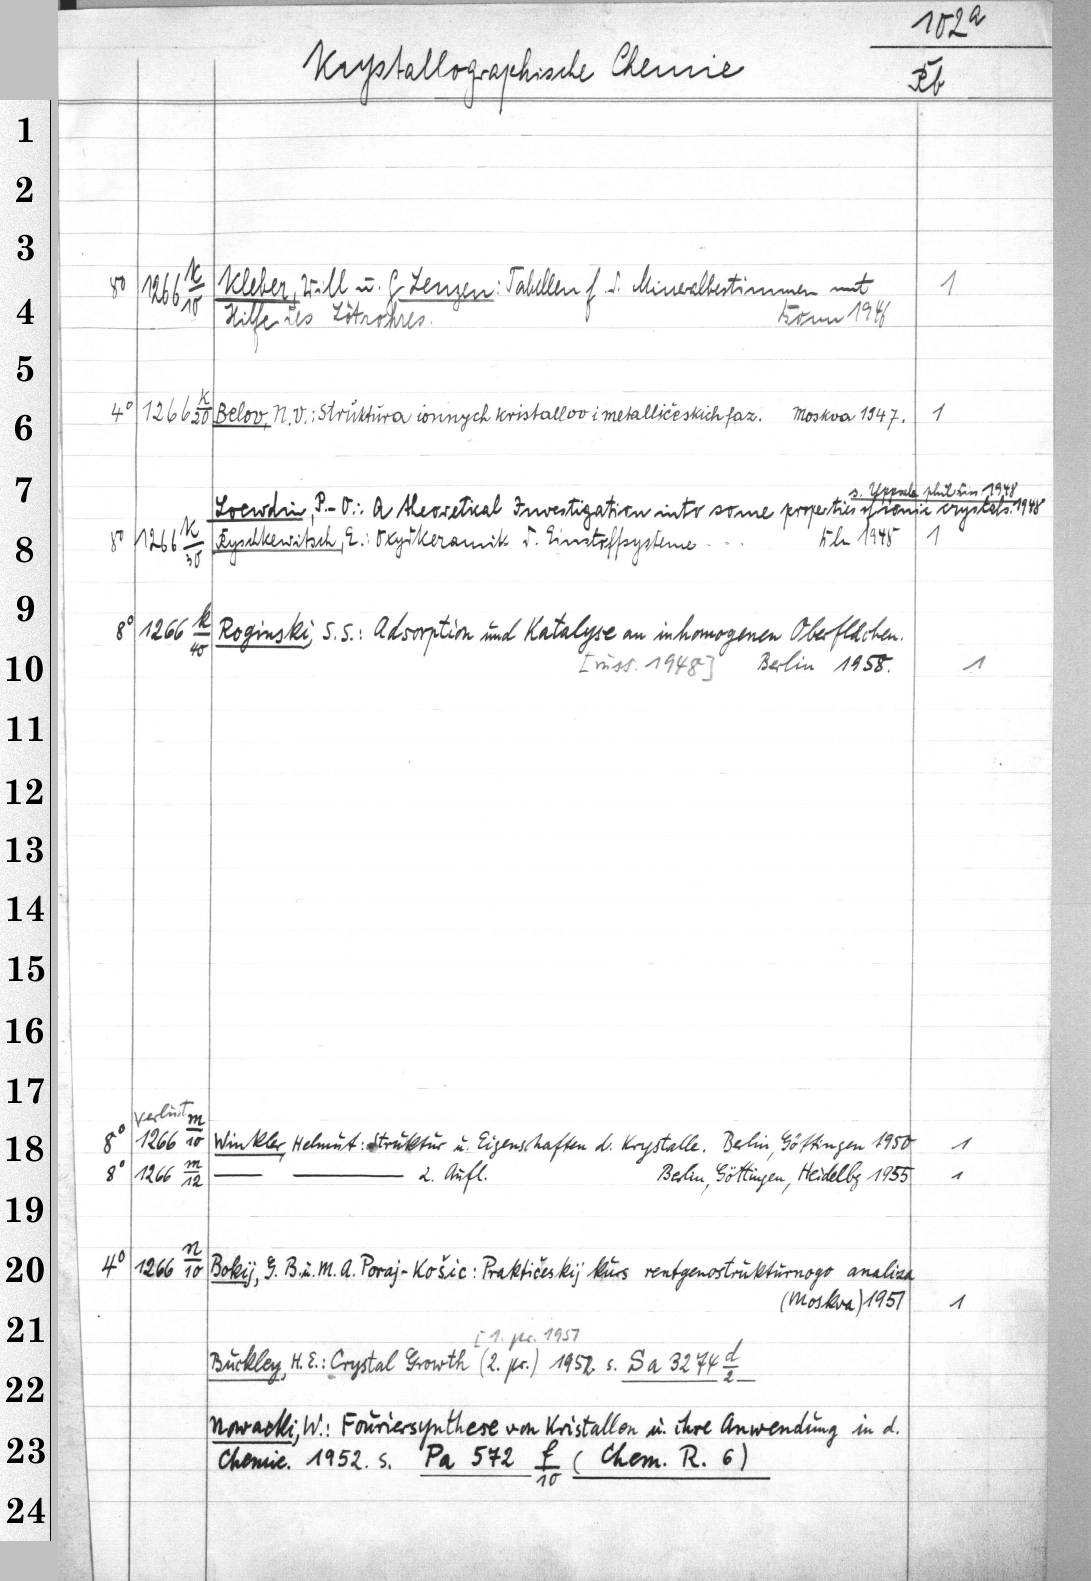 102a
Krystallographische Chemie
Kb
1
2
3
8° 1266 k/10 Kleber, Will u. Lenzen: Tabellen f. d. Mineralbestimmen mit 1
4
Hilfe des Lötrohres. Bonn 1946
5
4° 1266 k/20 Belov, N.V.: Struktura ionnych kristallov i metalličeskich faz. Moskva 1947. 1
6
7
s. Uppsala phil Diss 1948
Loewdin, P.-O.: A theoretical Investigation into some properties of ionic crystals. 1948
8° 1266 k/30 Ryschkewitsch, E.: Oxydkeramik d. Einstoffsysteme . . . Bln 1948 1
8
9
8° 1266 k/40 Roginski, S.S.: Adsorption und Katalyse an inhomogenen Oberflächen.
10
[russ. 1948] Berlin 1958. 1
11
12
13
14
15
16
17
Verlust
8° 1266 m/10 Winkler, Helmut: Struktur u. Eigenschaften d. Krystalle. Berlin, Göttingen 1950 1
18
8° 1266 m/12 —— —— 2. Aufl. Berlin, Göttingen, Heidelbg 1955 1
19
4° 1266 n/10 Bokij, G. B. u. M. A. Poraj-Košic: Praktičeskij kurs rentgenostrukturnogo analiza
20
(Moskva) 1951 1
21
[1. pr. 1951
Buckley, H. E.: Crystal Growth (2. pr.) 1952 s. Sa 3274 d/2
22
Nowacki, W.: Fouriersynthese von Kristallen u. ihre Anwendung in d.
23
Chemie. 1952. s. Pa 572 f/10 (Chem. R. 6)
24